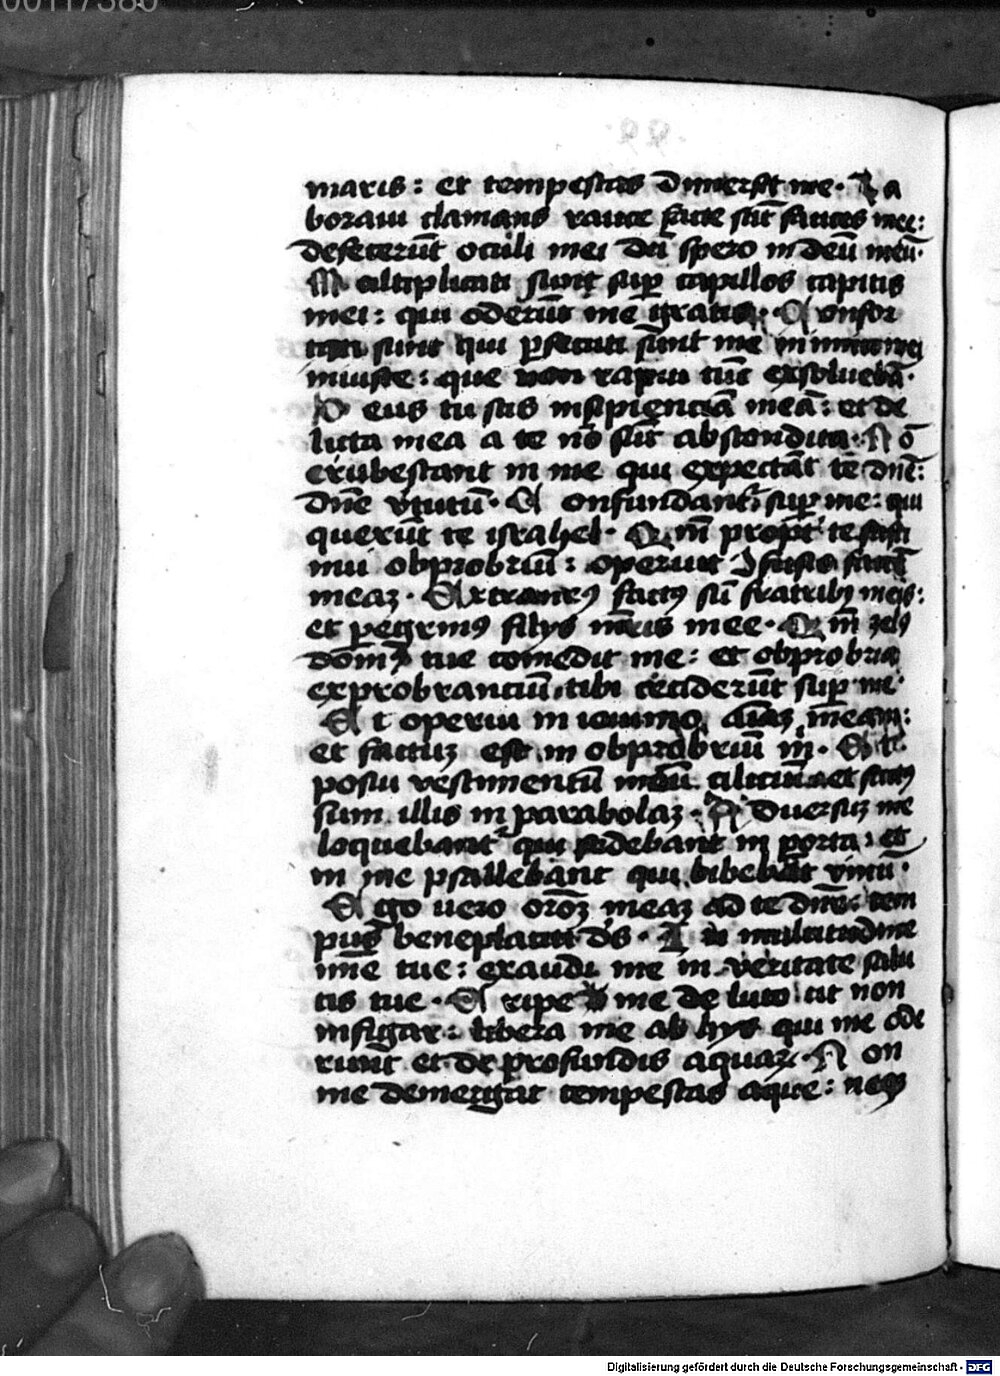 00117380
maris : et tempestas dimersit me · La
boraui clamans rauce facte sūt fauces mee :
defecerūt oculi mei dū spero in deū meū ·
Multiplicati sunt sup capillos capitis
mei : qui oderūt me gratis · Confor
tati sunt qui psecuti sunt me inimici mei
iniuste : que non rapui tūc exsoluebā ·
Deus tu scis insipienciā meā : et de
licta mea a te nō sūt abscondita · Nō
erubescant in me qui expectāt te dnē :
dnē vtutū · Confundant sup me : qui
querūt te israhel · Qm̄ propt te susti
nui obprobriū : operuit ꝯfusio faciē
meaz · Extraneꝰ factꝰ sū fratribꝰ meis :
et peregrinꝰ filijs mr̄is mee · Qm̄ zelꝰ
domꝰ tue comedit me : et obprobria
exprobranciū tibi ceciderūt sup me ·
Et operui in ieiunio aīaz meam :
et factuz est in obprobriū m̄ · Et
posui vestimentū meū ciliciū et factꝰ
sum illis in parabolaz · Aduersuz me
loquebant qui sedebant in porta : et
in me psallebant qui bibebāt vinū ·
Ego vero orōz meaz ad te dnē : tem
pus beneplaciti ds · In multitudine
mīe tue : exaudi me in veritate salu
tis tue · Eripe me de luto ut non
infigar : libera me ab hijs qui me ode
runt et de profundis aquaꝝ · Non
me demergat tempestas aque : neqꝫ
Digitalisierung gefördert durch die Deutsche Forschungsgemeinschaft - DFG